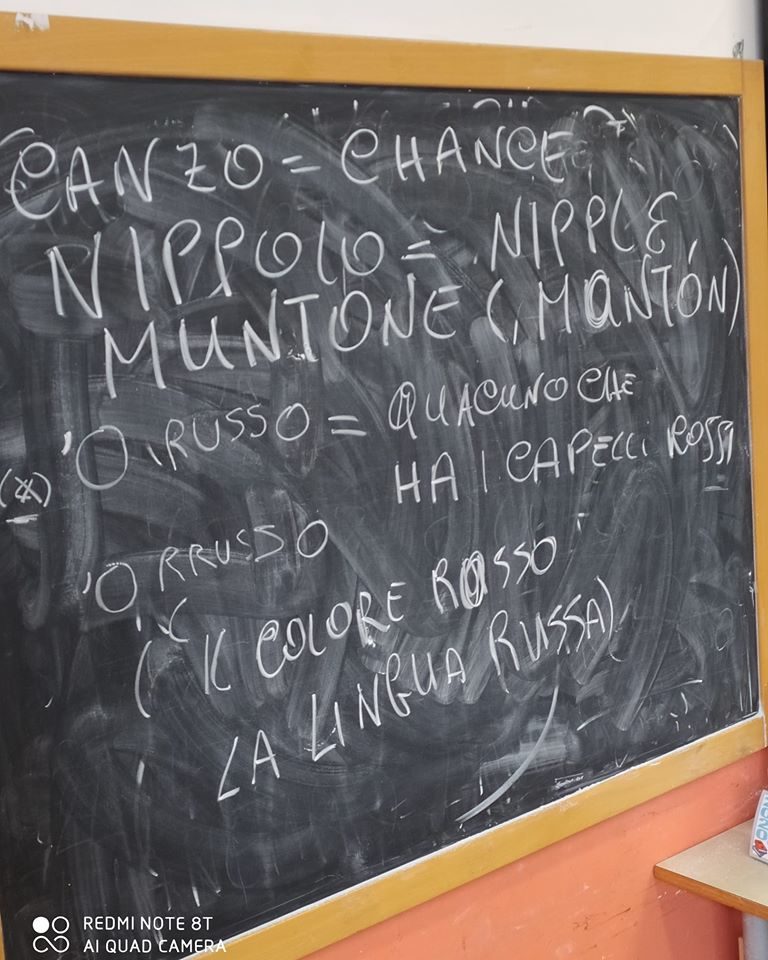 CANZO = CHANCE
NIPPOLO = NIPPLE
MUNTONE (MONTÓN)
'O RUSSO = QUACUNO CHE
(*) HA I CAPELLI ROSSI
'O RRUSSO
(IL COLORE ROSSO
LA LINGUA RUSSA)
REDMI NOTE 8T
AI QUAD CAMERA